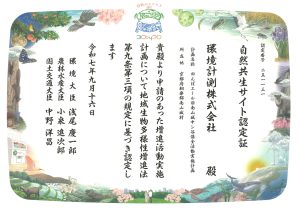 自然共生サイト認定証
環境計測株式会社 殿
貴殿より申請のあった増進活動実施
計画について地域生物多様性増進法
第九条第三項の規定に基づき認定し
ます
令和七年九月十六日
環境大臣 浅尾慶一郎
農林水産大臣 小泉進次郎
国土交通大臣 中野洋昌